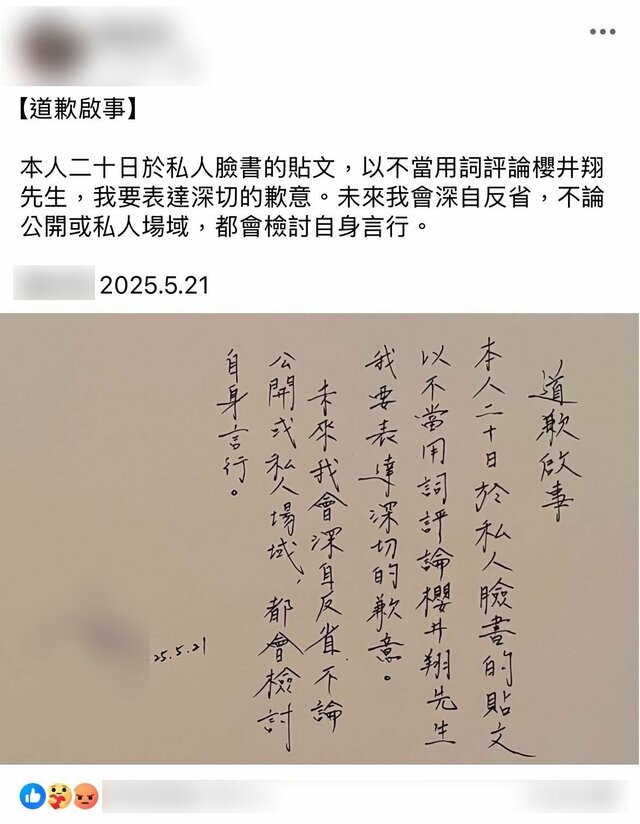 【道歉啟事】
本人二十日於私人臉書的貼文，以不當用詞評論櫻井翔
先生，我要表達深切的歉意。未來我會深自反省，不論
公開或私人場域，都會檢討自身言行。
2025.5.21
道歉啟事
本人二十日於私人臉書的貼文
以不當用詞評論櫻井翔先生
我要表達深切的歉意。
未來我會深自反省，不論
公開或私人場域，都會檢討
自身言行。
25.5.21